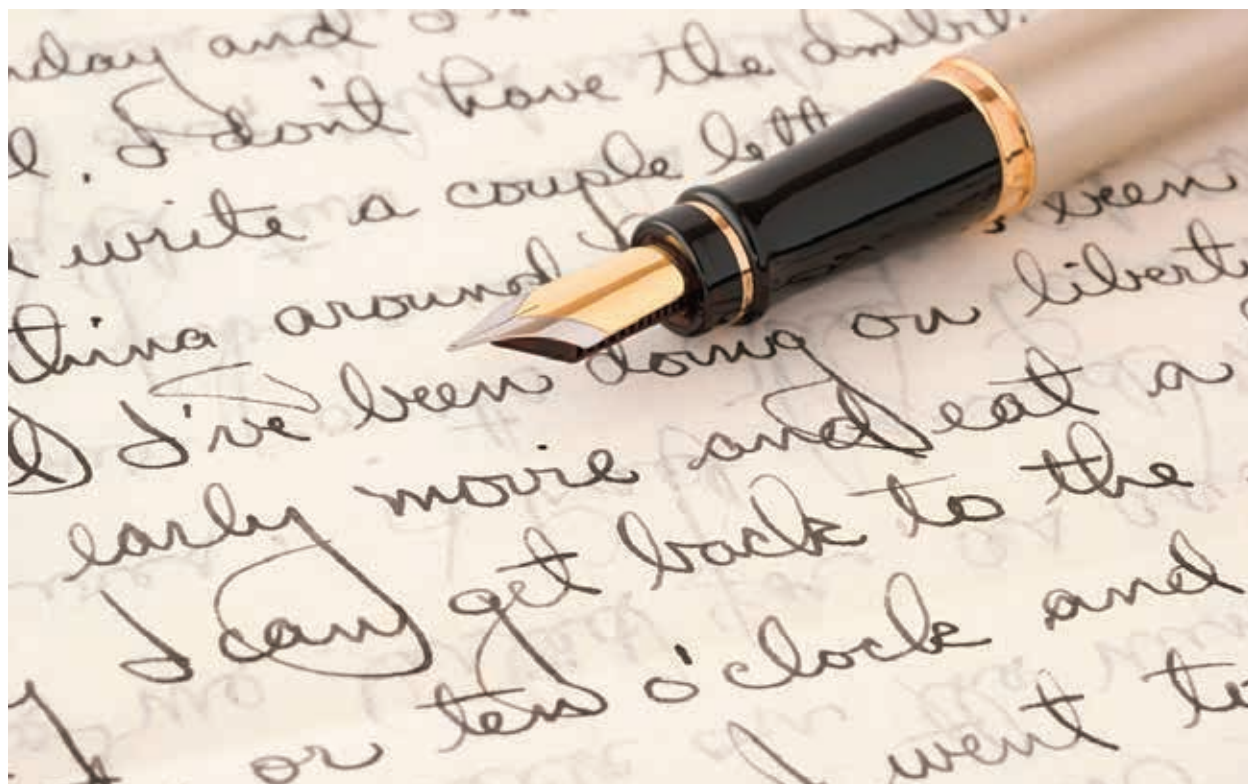 day and
I don't have the
write a couple
around been
I've been doing on liberty
early movie and eat a
I can get back to the
or ten o'clock and
I went to